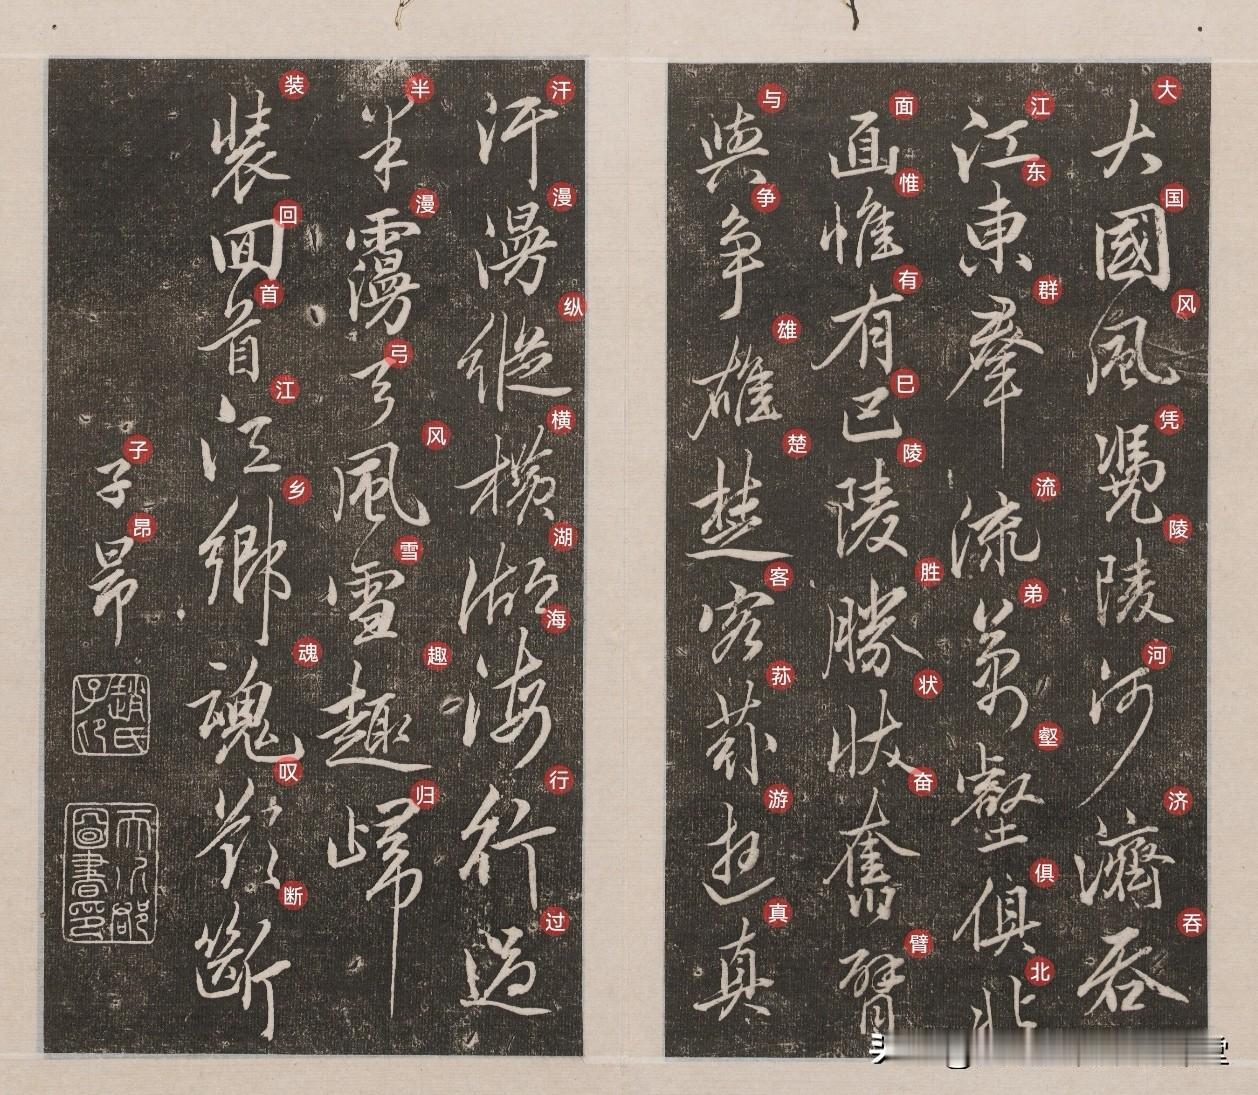 大國風凴陵河濟吞
大国风凭陵河济吞
江東羣流弟壑俱北
江东群流弟壑俱北
面惟有已陵勝狀奮臂
面惟有巳陵胜状奋臂
與爭雄楚客蓀遊真
与争雄楚客荪游真
汗漫縱橫湖海行過
汗漫纵横湖海行过
半弓風雪趣歸
半漫弓风雪趣归
裝回首江鄉魂歎斷
装回首江乡魂叹断
子昂
子昂
趙氏子印
天水郡圖書印